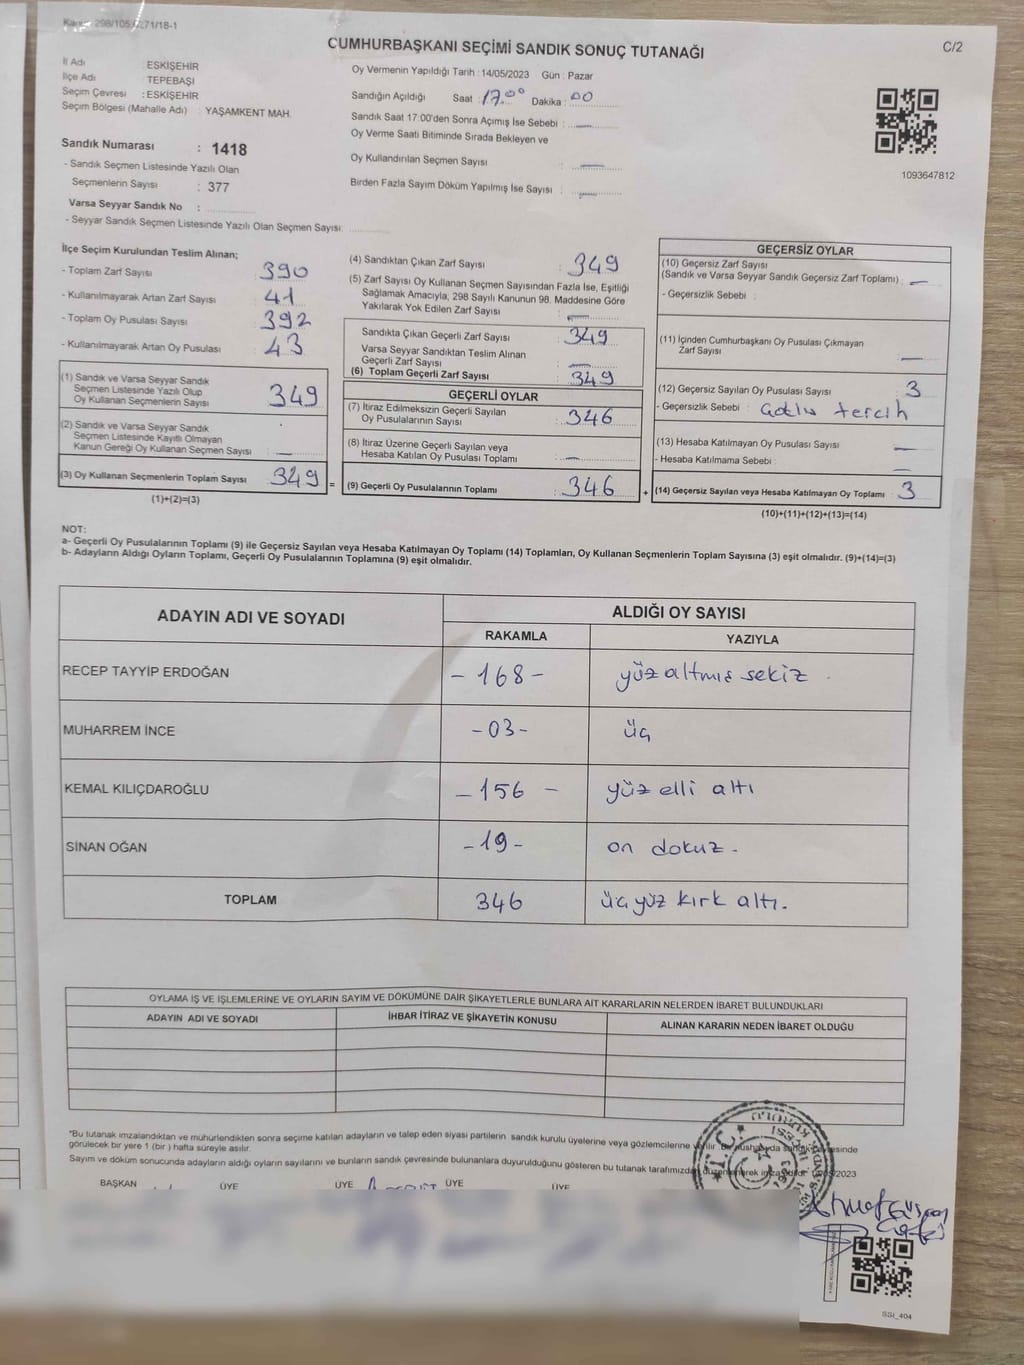 Kanun 298/105,271/18-1
CUMHURBAŞKANI SEÇİMİ SANDIK SONUÇ TUTANAĞI
C/2
İl Adı : ESKİŞEHİR
İlçe Adı : TEPEBAŞI
Seçim Çevresi : ESKİŞEHİR
Seçim Bölgesi (Mahalle Adı) : YAŞAMKENT MAH.
Sandık Numarası : 1418
- Sandık Seçmen Listesinde Yazılı Olan
Seçmenlerin Sayısı : 377
Varsa Seyyar Sandık No :
- Seyyar Sandık Seçmen Listesinde Yazılı Olan Seçmen Sayısı:
Oy Vermenin Yapıldığı Tarih : 14/05/2023 Gün : Pazar
Sandığın Açıldığı Saat : 17.00 Dakika : 00
Sandık Saat 17:00'den Sonra Açımış İse Sebebi : —
Oy Verme Saati Bitiminde Sırada Bekleyen ve
Oy Kullandırılan Seçmen Sayısı : —
Birden Fazla Sayım Döküm Yapılmış İse Sayısı : —
1093647812
İlçe Seçim Kurulundan Teslim Alınan;
- Toplam Zarf Sayısı : 390
- Kullanılmayarak Artan Zarf Sayısı : 41
- Toplam Oy Pusulası Sayısı : 392
- Kullanılmayarak Artan Oy Pusulası : 43
(1) Sandık ve Varsa Seyyar Sandık
Seçmen Listesinde Yazılı Olup
Oy Kullanan Seçmenlerin Sayısı : 349
(2) Sandık ve Varsa Seyyar Sandık
Seçmen Listesinde Kayıtlı Olmayan
Kanun Gereği Oy Kullanan Seçmen Sayısı : —
(3) Oy Kullanan Seçmenlerin Toplam Sayısı : 349 =
(1)+(2)=(3)
(4) Sandıktan Çıkan Zarf Sayısı : 349
(5) Zarf Sayısı Oy Kullanan Seçmen Sayısından Fazla İse, Eşitliği
Sağlamak Amacıyla, 298 Sayılı Kanunun 98. Maddesine Göre
Yakılarak Yok Edilen Zarf Sayısı : —
Sandıkta Çıkan Geçerli Zarf Sayısı : 349
Varsa Seyyar Sandıktan Teslim Alınan
Geçerli Zarf Sayısı : —
(6) Toplam Geçerli Zarf Sayısı : 349
GEÇERLİ OYLAR
(7) İtiraz Edilmeksizin Geçerli Sayılan
Oy Pusulalarının Sayısı : 346
(8) İtiraz Üzerine Geçerli Sayılan veya
Hesaba Katılan Oy Pusulası Toplamı : —
(9) Geçerli Oy Pusulalarının Toplamı : 346 +
GEÇERSİZ OYLAR
(10) Geçersiz Zarf Sayısı
(Sandık ve Varsa Seyyar Sandık Geçersiz Zarf Toplamı) : —
- Geçersizlik Sebebi :
(11) İçinden Cumhurbaşkanı Oy Pusulası Çıkmayan
Zarf Sayısı : —
(12) Geçersiz Sayılan Oy Pusulası Sayısı : 3
- Geçersizlik Sebebi : Çoklu tercih
(13) Hesaba Katılmayan Oy Pusulası Sayısı : —
- Hesaba Katılmama Sebebi : —
(14) Geçersiz Sayılan veya Hesaba Katılmayan Oy Toplamı : 3
(10)+(11)+(12)+(13)=(14)
NOT:
a- Geçerli Oy Pusulalarının Toplamı (9) ile Geçersiz Sayılan veya Hesaba Katılmayan Oy Toplamı (14) Toplamları, Oy Kullanan Seçmenlerin Toplam Sayısına (3) eşit olmalıdır. (9)+(14)=(3)
b- Adayların Aldığı Oyların Toplamı, Geçerli Oy Pusulalarının Toplamına (9) eşit olmalıdır.
ADAYIN ADI VE SOYADI
ALDIĞI OY SAYISI
RAKAMLA YAZIYLA
RECEP TAYYİP ERDOĞAN - 168 - yüz altmış sekiz
MUHARREM İNCE - 03 - üç
KEMAL KILIÇDAROĞLU - 156 - yüz elli altı
SİNAN OĞAN - 19 - on dokuz.
TOPLAM 346 üçyüz kırk altı.
OYLAMA İŞ VE İŞLEMLERİNE VE OYLARIN SAYIM VE DÖKÜMÜNE DAİR ŞİKAYETLERLE BUNLARA AİT KARARLARIN NELERDEN İBARET BULUNDUKLARI
ADAYIN ADI VE SOYADI İHBAR İTİRAZ VE ŞİKAYETİN KONUSU ALINAN KARARIN NEDEN İBARET OLDUĞU
*Bu tutanak imzalandıktan ve mühürlendikten sonra seçime katılan adayların ve talep eden siyasi partilerin sandık kurulu üyelerine veya gözlemcilerine
görülecek bir yere 1 (bir ) hafta süreyle asılır.
Sayım ve döküm sonucunda adayların aldığı oyların sayılarını ve bunların sandık çevresinde bulunanlara duyurulduğunu gösteren bu tutanak tarafımızdan
BAŞKAN ÜYE ÜYE ÜYE ÜYE
T.C.
SSI_404